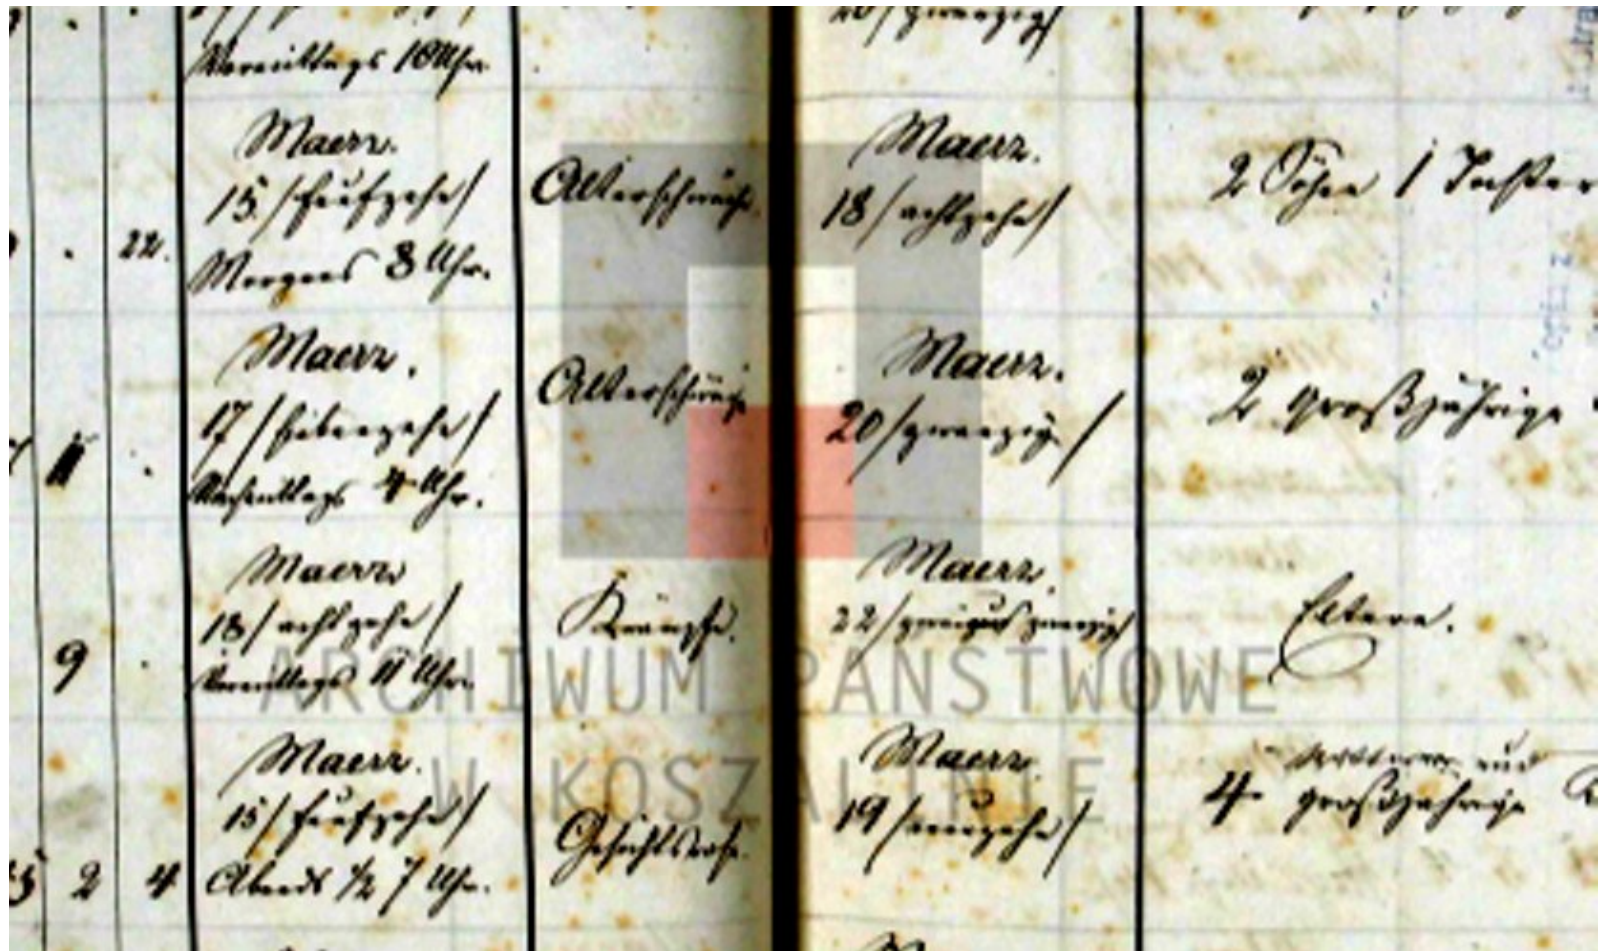 Vormittags 10 Uhr.
20/zwanzig/
Maerz.
15./fünfzehn/
22. Morgens 8 Uhr.
Alterschwäche.
Maerz.
18/achtzehn/
2 Söhne 1 Tochter
Maerz.
17/siebenzehn/
11 Nachmittags 4 Uhr.
Alterschwäche
Maerz.
20/zwanzig/
2 großjährige
Maerz
18/achtzehn/
9 Vormittags 11 Uhr.
Krämpfe.
Maerz.
22/zweiundzwanzig/
Eltern.
Maerz.
15/fünfzehn/
2 4 Abends ½ 7 Uhr.
Gesichtsrose.
Maerz.
19/neunzehn/
und
4 großjährige
ARCHIWUM PAŃSTWOWE
W KOSZALINIE